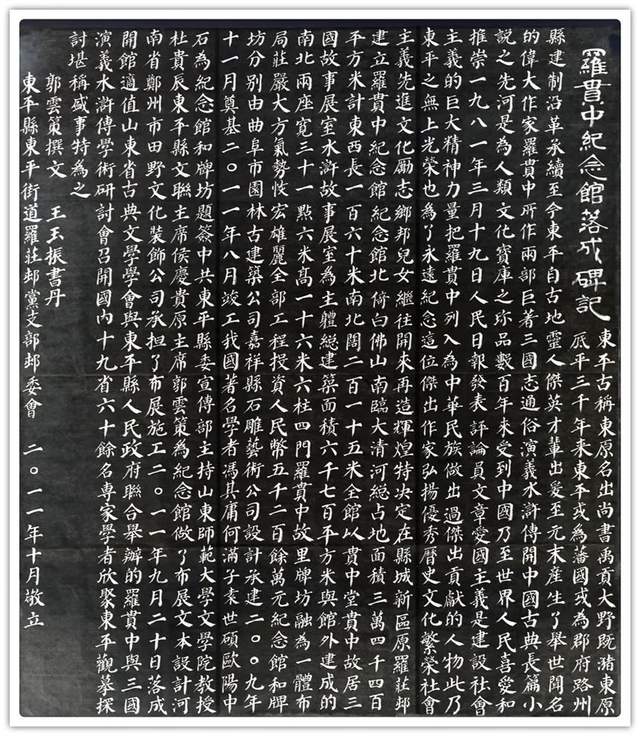 羅貫中紀念館落成碑記
東平古稱東原名出尚書禹貢大野既豬東原
厎平三千年來東平或為藩國或為郡府路州
縣建制沿革承續至今東平自古地靈人傑英才輩出爰至元末產生了舉世聞名
的偉大作家羅貫中所作兩部巨著三國志通俗演義水滸傳開中國古典長篇小
說之先河是為人類文化寶庫之珎品數百年來受到中國乃至世界人民喜愛和
推崇一九八一年三月十九日人民日報發表評論員文章愛國主義是建設社會
主義的巨大精神力量把羅貫中列入為中華民族做出過傑出貢獻的人物此乃
東平之無上光榮也為了永遠紀念這位傑出作家弘揚優秀曆史文化繁榮社會
主義先進文化勵志鄉邦兒女繼往開來再造輝煌特決定在縣城新區原羅莊邨
建立羅貫中紀念館紀念館北倚白佛山南臨大清河總占地面積三萬四千四百
平方米計東西長一百六十米南北闊二百一十五米全館以貫中堂貫中故居三
國故事展室水滸故事展室為主體總建築面積六千七百平方米與館外建成的
南北兩座寬三十一點六米高一十六米六柱四門羅貫中故里牌坊融為一體布
局莊嚴大方氣勢恢宏雄麗全部工程投資人民幣五千二百餘萬元紀念館和牌
坊分別由曲阜市園林古建築公司嘉祥縣石雕藝術公司設計承建二〇〇九年
十一月奠基二〇一一年八月竣工我國著名學者馮其庸何滿子袁世碩歐陽中
石為紀念館和牌坊題簽中共東平縣委宣傳部主持山東師範大學文學院教授
杜貴辰東平縣文聯主席侯慶貴原主席郭雲策為紀念館做了布展文本設計河
南省鄭州市田野文化裝飾公司承担了布展施工二〇一一年九月二十日落成
開館適值山東省古典文學學會與東平縣人民政府聯合舉辦的羅貫中與三國
演義水滸傳學術研討會召開國內十九省六十餘名專家學者欣聚東平觀摹探
討堪稱盛事特為之
郭雲策撰文　王玉振書丹
東平縣東平街道羅莊邨黨支部邨委會　二〇一一年十月敬立